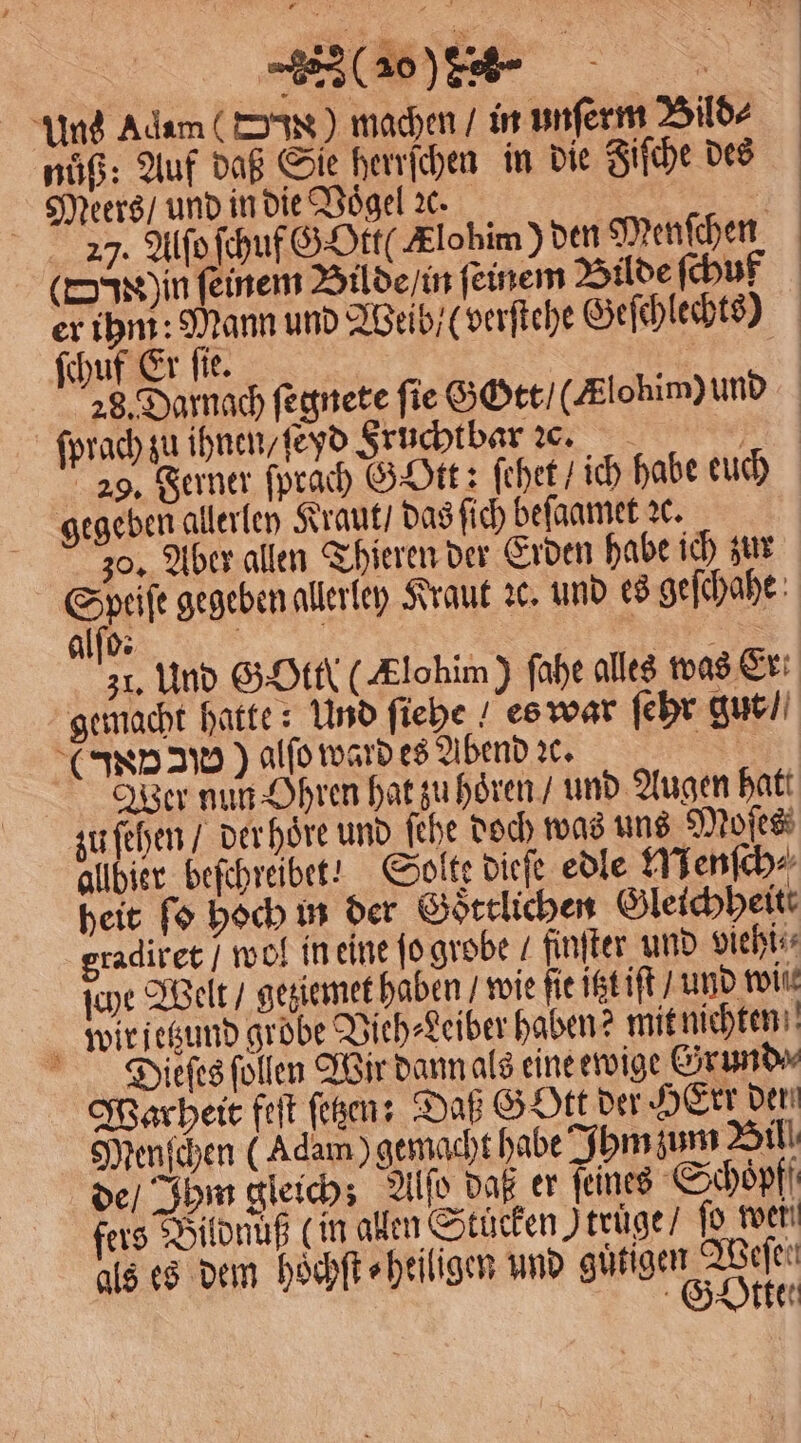 (20)
Uns Adam (אדם) machen / in unſerm Bild⸗
nuͤß: Auf daß Sie herrſchen in die Fiſche des
Meers/ und in die Voͤgel ꝛc.
27. Alſo ſchuf GOtt( Ælohim ) den Menſchen
(אדם)in ſeinem Bilde/in ſeinem Bilde ſchuf
er ihm: Mann und Weib/(verſtehe Geſchlechts)
ſchuf Er ſie.
28. Darnach ſegnete ſie GOtt/ (Ælohim) und
ſprach zu ihnen/ ſeyd Fruchtbar ꝛc.
29. Ferner ſprach GOtt: ſehet / ich habe euch
gegeben allerley Kraut/ das ſich beſaamet ꝛc.
30. Aber allen Thieren der Erden habe ich zur
Speiſe gegeben allerley Kraut ꝛc. und es geſchahe
alſo:
31. Und GOtt (Ælohim) ſahe alles was Er
gemacht hatte: Und ſiehe / es war ſehr gut/
(טוב מאד) alſo ward es Abend ꝛc.
Wer nun Ohren hat zu hoͤren / und Augen hat
zu ſehen / der hoͤre und ſehe doch was uns Moſes
allhier beſchreibet! Solte dieſe edle Menſch⸗
heit ſo hoch in der Goͤttlichen Gleichheit
gradiret / wol in eine ſo grobe / finſter und viehi⸗
ſche Welt / geziemet haben / wie ſie itzt iſt / und wie
wir jetzund grobe Vieh⸗Leiber haben? mit nichten!
Dieſes ſollen Wir dann als eine ewige Grund⸗
Warheit feſt ſetzen: Daß GOtt der HErr den
Menſchen (Adam) gemacht habe Ihm zum Bil⸗
de/ Ihm gleich; Alſo daß er ſeines Schoͤpf⸗
fers Bildnuͤß (in allen Stuͤcken) truͤge/ ſo wer
als es dem hoͤchſt⸗heiligen und guͤtigen Weſen
GOttes